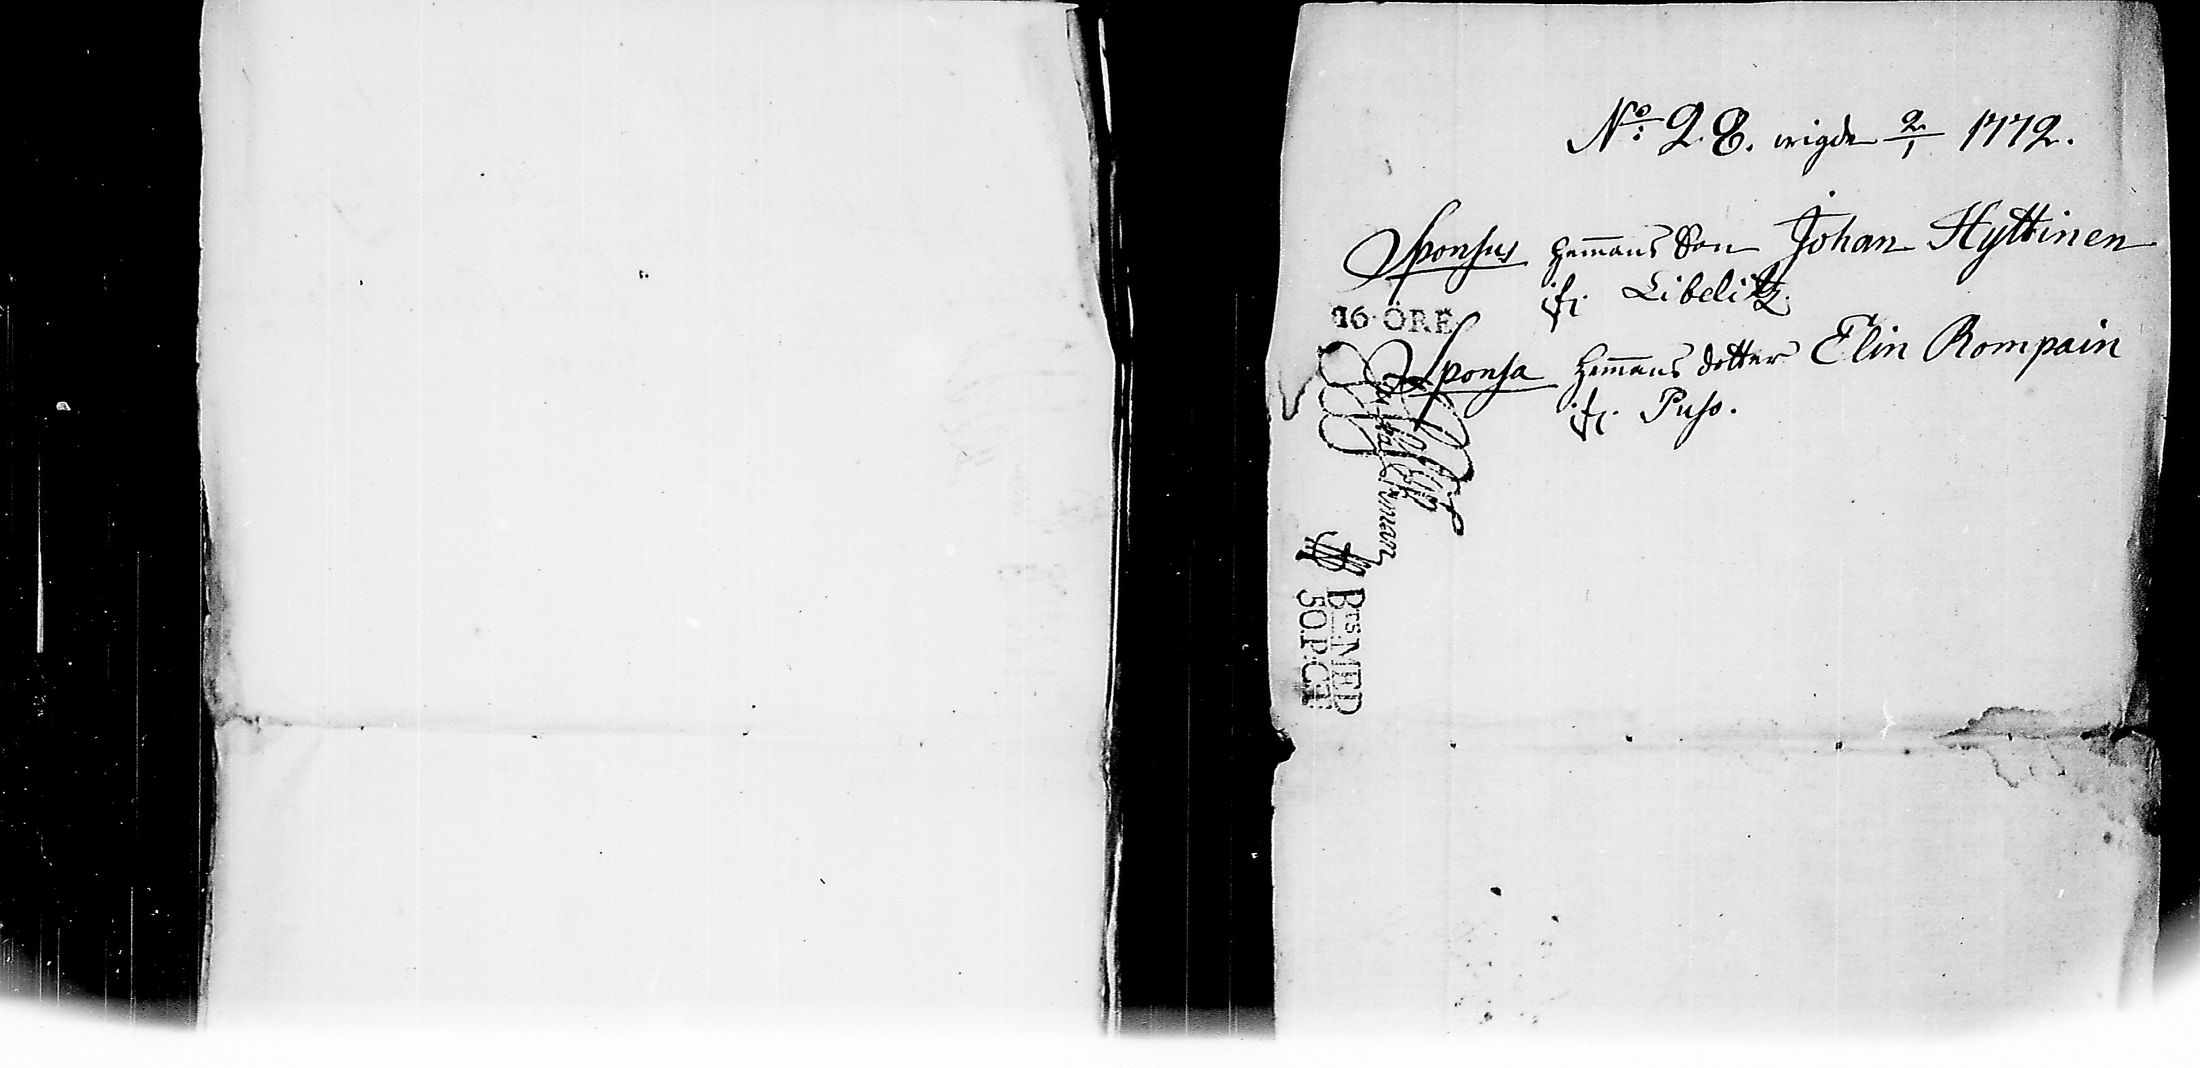 No: 28. wigde 2/1 1772.
Sponsus Hem̅ans Son Johan Hyttinen
ifr. Libelitz.
16 ÖRE
Sponsa Hem̅ans dotter Elin Rompain
ifr. Puso.
BTS MED
50 P:CT